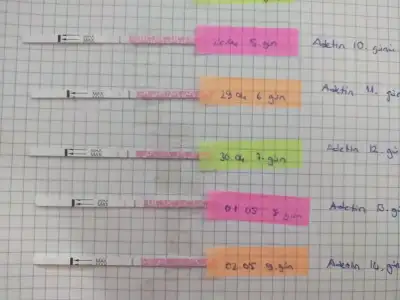 5. gün Adetin 10. günü
29.04 6. gün Adetin 11. gün
30.04 7. gün Adetin 12. gün
01.05 8. gün Adetin 13. g
02.05 9. gün Adetin 14. gün